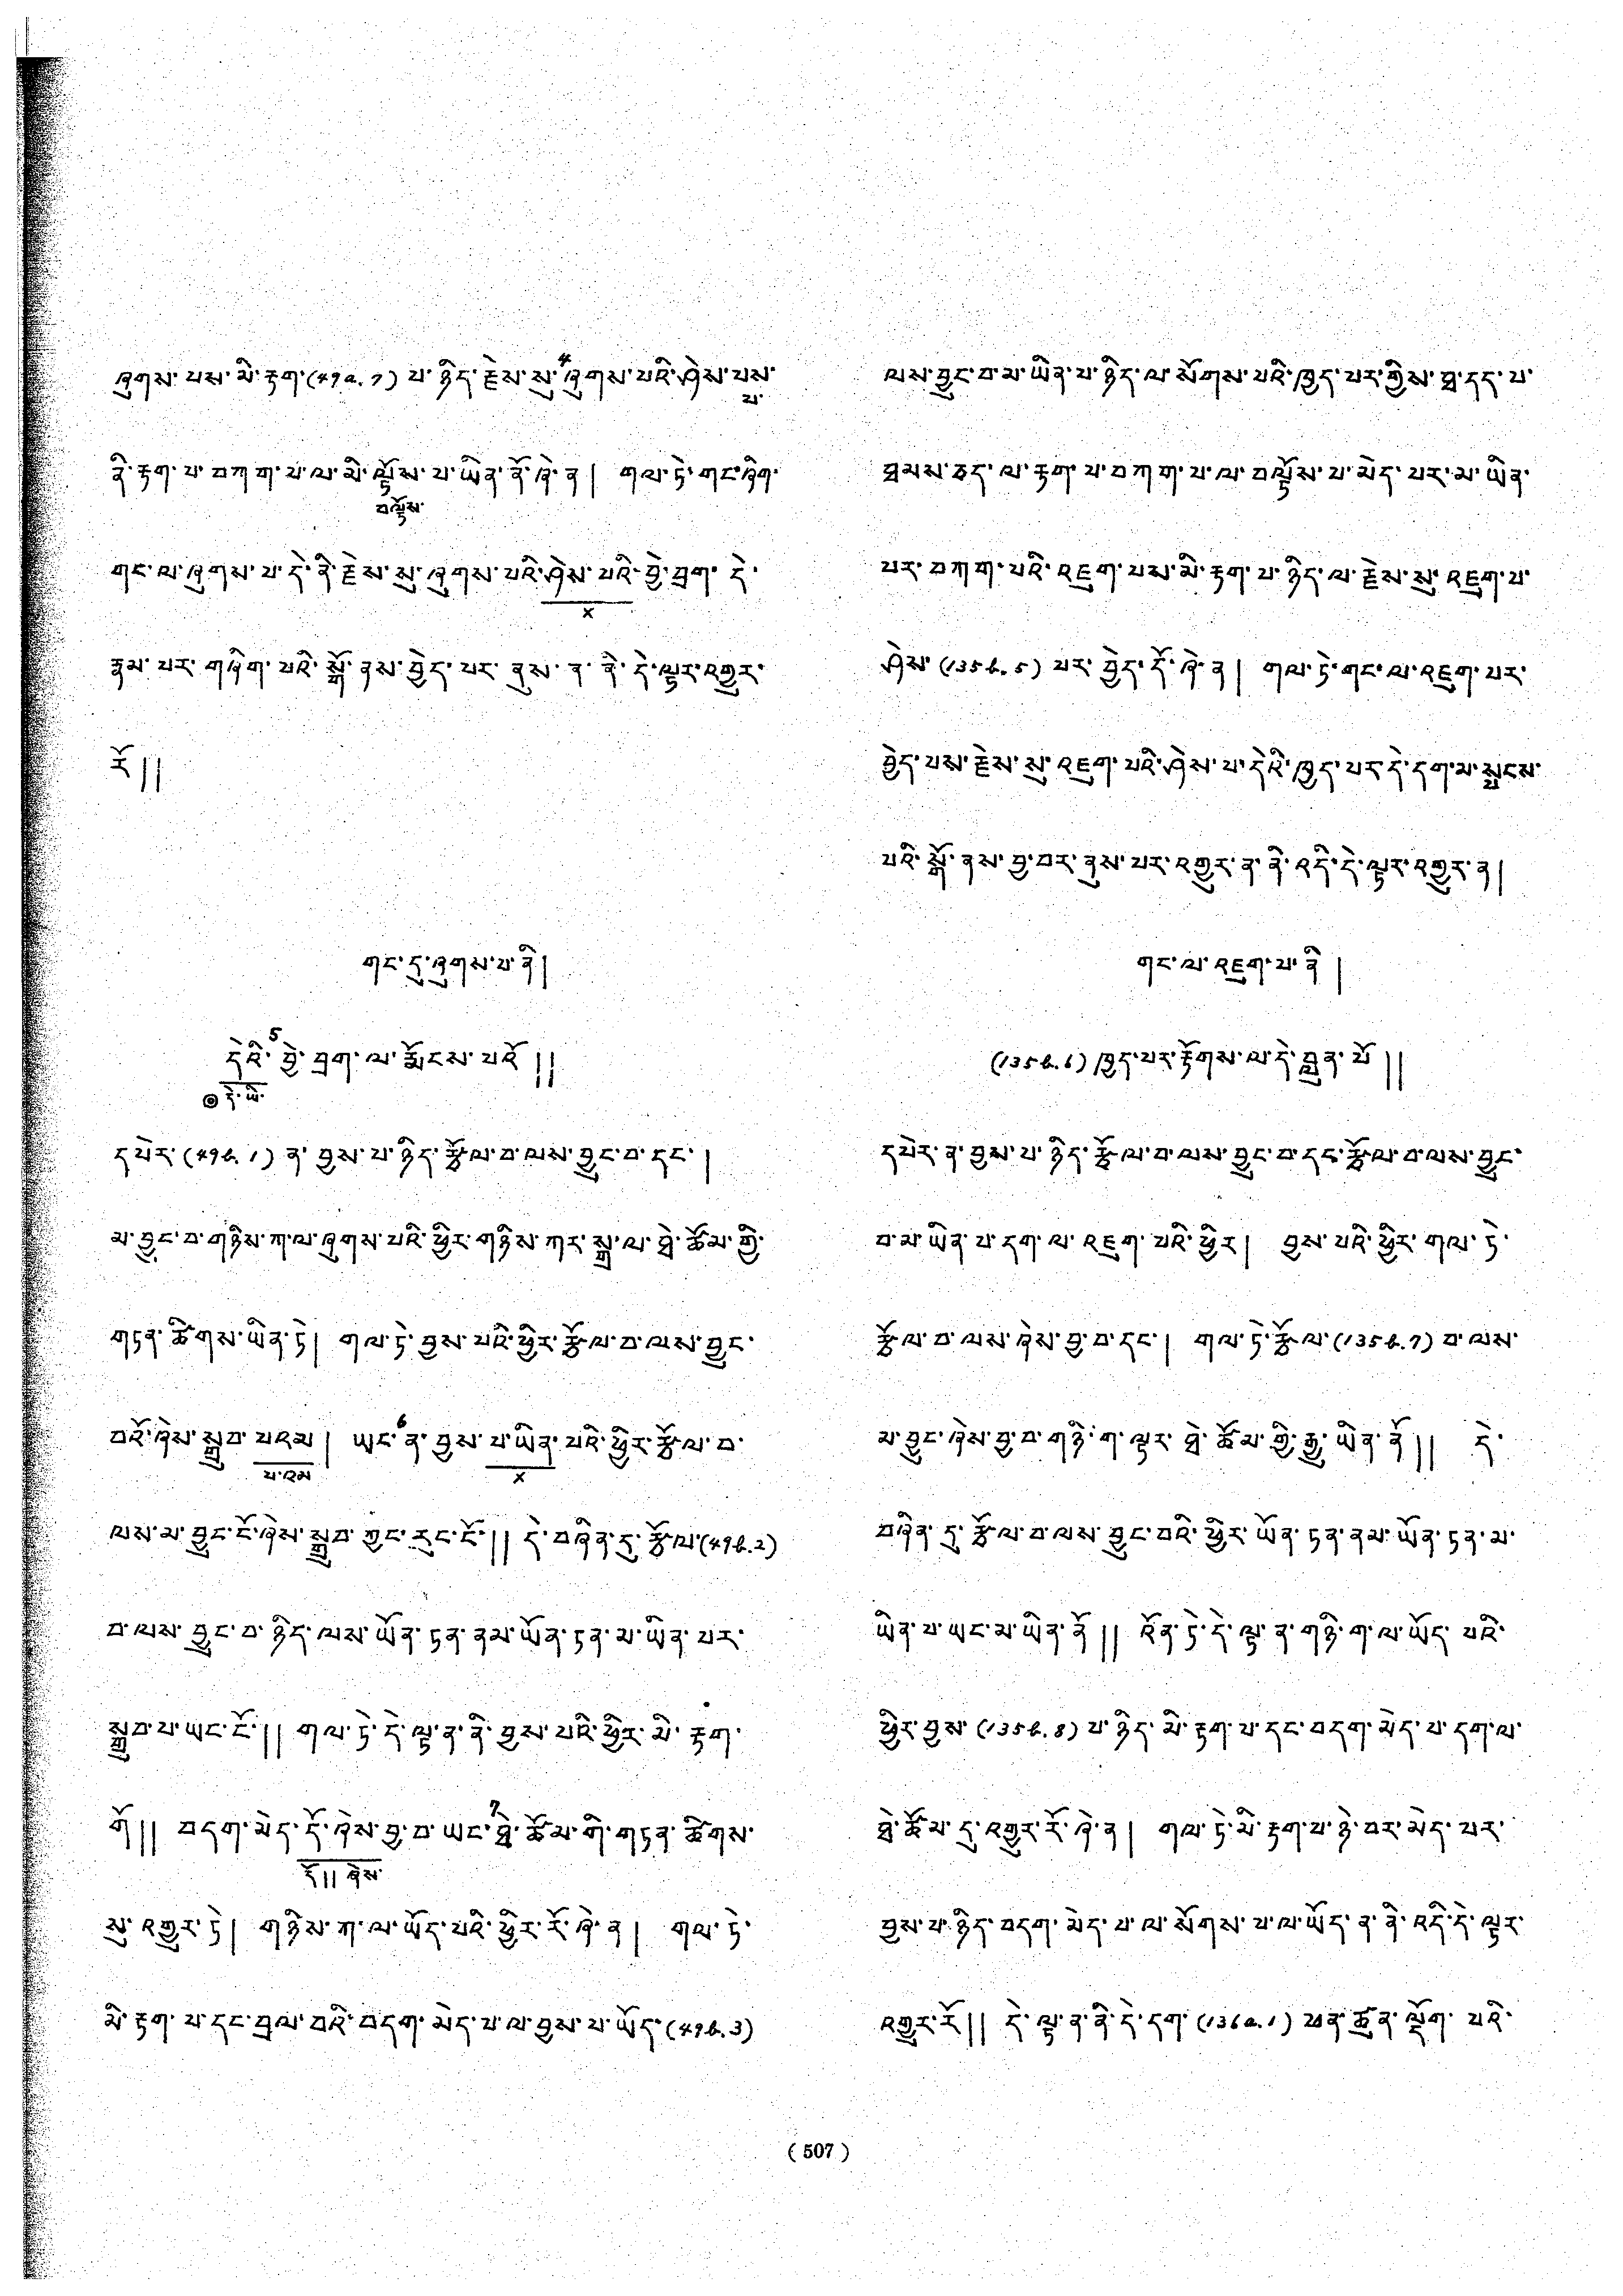 ཞུགས་པས་མི་རྟག་(49a.7) པ་ཉིད་རྗེས་སུ་4ཞུགས་པའི་ཤེས་པས་
པ་
ནི་རྟག་པ་བཀག་པ་ལ་མི་ལྟོས་པ་ཡིན་ནོ་ཞེ་ན། གལ་ཏེ་གང་ཞིག་
བལྟོས་
གང་ལ་ཞུགས་པ་དེ་ནི་རྗེས་སུ་ཞུགས་པའི་ཤེས་པའི་བྱེ་བྲག་དེ་
×
རྣམ་པར་གཞིག་པའི་སྒོ་ནས་བྱེད་པར་ནུས་ན་ནི་དེ་ལྟར་འགྱུར་
རོ།།
གང་དུ་ཞུགས་པ་ནི།
དེའི་5བྱེ་བྲག་ལ་རྨོངས་པའོ།།
◎དེ་ཡི་
དཔེར་(49b.1) ན་བྱས་པ་ཉིད་རྩོལ་བ་ལས་བྱུང་བ་དང་།
མ་བྱུང་བ་གཉིས་ཀ་ལ་ཞུགས་པའི་ཕྱིར་གཉིས་ཀར་སྒྲ་ལ་ཐེ་ཚོམ་གྱི་
གཏན་ཚིགས་ཡིན་ཏེ། གལ་ཏེ་བྱས་པའི་ཕྱིར་རྩོལ་བ་ལས་བྱུང་
བའོ་ཞེས་སྒྲུབ་པདམ། ཡང་6ན་བྱས་པ་ཡིན་པའི་ཕྱིར་རྩོལ་བ་
པ་འམ ×
ལས་མ་བྱུང་ངོ་ཞེས་སྒྲུབ་ཀྱང་རུང་ངོ་།། དེ་བཞིན་དུ་རྩོལ་(49b.2)
བ་ལས་བྱུང་བ་ཉིད་ལས་ཡོན་ཏན་ནམ་ཡོན་ཏན་མ་ཡིན་པར་
སྒྲུབ་པ་ཡང་ངོ་།། གལ་ཏེ་དེ་ལྟ་ན་ནི་བྱས་པའི་ཕྱིར་མི་རྟག་
གོ།། བདག་མེད་དོ་ཞེས་བྱ་བ་ཡང་7ཐེ་ཚོམ་གི་གཏན་ཚིགས་
དོ།།ཞེས་
སུ་འགྱུར་ཏེ། གཉིས་ཀ་ལ་ཡོད་པའི་ཕྱིར་རོ་ཞེ་ན། གལ་ཏེ་
མི་རྟག་པ་དང་བྲལ་བའི་བདག་མེད་པ་ལ་བྱས་པ་ཡོད་(49b.3)
ལས་བྱུང་བ་མ་ཡིན་པ་ཉིད་ལ་སོགས་པའི་ཁྱད་པར་གྱིས་ཐ་དད་པ་
ཐམས་ཅད་ལ་རྟག་པ་བཀག་པ་ལ་བལྟོས་པ་མེད་པར་མ་ཡིན་
པར་བཀག་པའི་འཇུག་པས་མི་རྟག་པ་ཉིད་ལ་རྗེས་སུ་འཇུག་པ་
ཤེས་(135b.5) པར་བྱེད་དོ་ཞེ་ན། གལ་ཏེ་གང་ལ་འཇུག་པར་
བྱེད་པས་རྗེས་སུ་འཇུག་པའི་ཤེས་པ་དེའི་ཁྱད་པར་དེ་དག་མ་སྤངས་
པའི་སྒོ་ནས་བྱ་བར་ནུས་པར་འགྱུར་ན་ནི་འདི་དེ་ལྟར་འགྱུར་ན།
གང་ལ་འཇུག་པ་ནི།
(135b.6) ཁྱད་པར་རྟོགས་ལ་དེ་བླུན་པོ།།
དཔེར་ན་བྱས་པ་ཉིད་རྩོལ་བ་ལས་བྱུང་བ་དང་རྩོལ་བ་ལས་བྱུང་
བ་མ་ཡིན་པ་དག་ལ་འཇུག་པའི་ཕྱིར། བྱས་པའི་ཕྱིར་གལ་ཏེ་
རྩོལ་བ་ལས་ཞེས་བྱ་བ་དང་། གལ་ཏེ་རྩོལ་(135b.7) བ་ལས་
མ་བྱུང་ཞེས་བྱ་བ་གཉི་ག་ལྟར་ཐེ་ཚོམ་གྱི་རྒྱུ་ཡིན་ནོ།། དེ་
བཞིན་དུ་རྩོལ་བ་ལས་བྱུང་བའི་ཕྱིར་ཡོན་ཏན་ནམ་ཡོན་ཏན་མ་
ཡིན་པ་ཡང་མ་ཡིན་ནོ།། འོན་ཏེ་དེ་ལྟ་ན་གཉི་ག་ལ་ཡོད་པའི་
ཕྱིར་བྱས་(135b.8) པ་ཉིད་མི་རྟག་པ་དང་བདག་མེད་པ་དག་ལ་
ཐེ་ཚོམ་དུ་འགྱུར་རོ་ཞེ་ན། གལ་ཏེ་མི་རྟག་པ་ཉེ་བར་མེད་པར་
བྱས་པ་ཉིད་བདག་མེད་པ་ལ་སོགས་པ་ལ་ཡོད་ན་ནི་འདི་དེ་ལྟར་
འགྱུར་རོ།། དེ་ལྟ་ན་ནི་དེ་དག་(136a.1) ཕན་ཚུན་ལྡོག་པའི་
( 507 )